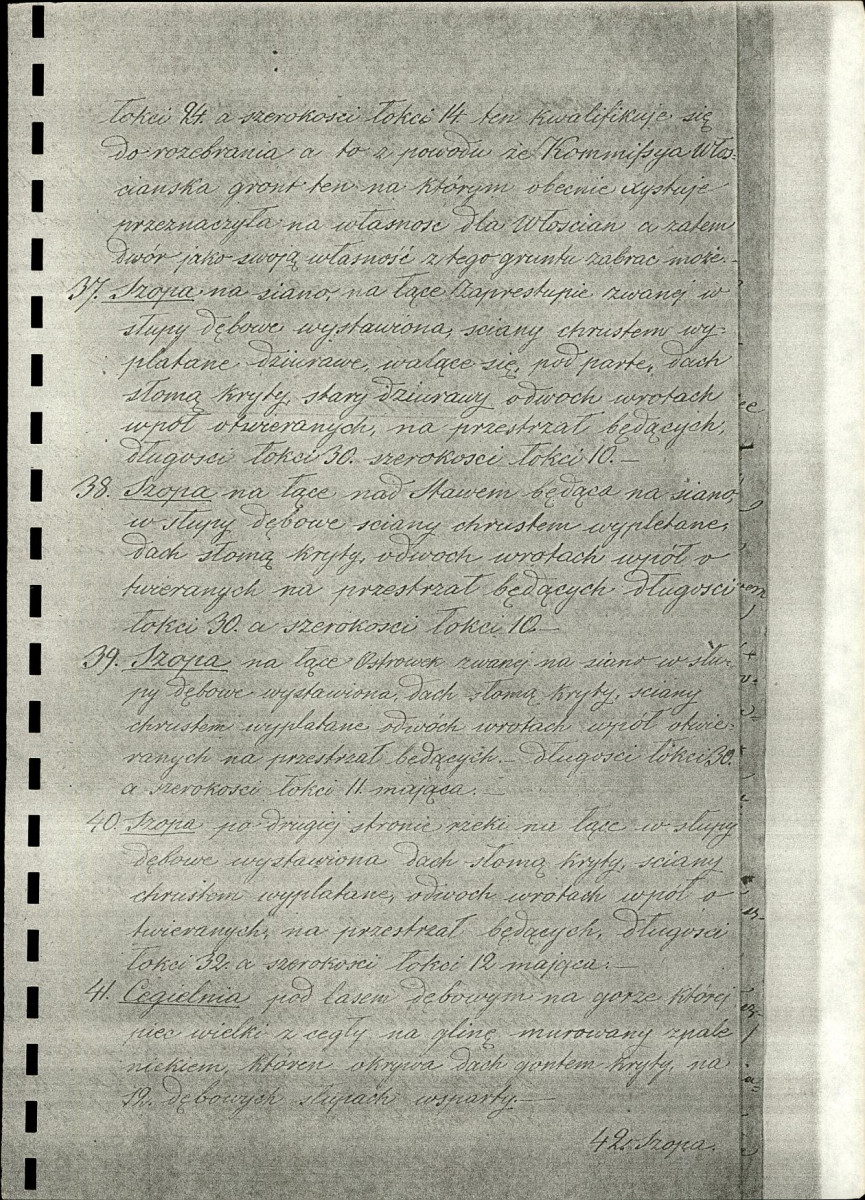 łokci 24. a szerokosci łokci 14. ten kwalifikuje się
do rozebrania a to z powodu że Kommissya Włos-
cianska gront ten na którym obecnie exystuje
przeznaczyła na własnosc dla Włoscian a zatem
dwór jako swoją własność z tego gruntu zabrac może.-
37. Szopa na siano, na łące Zaprestupie zwanej w
słupy dębowe wystawiona, sciany chrustem wy-
platane dziurawe, walące się, podparte, dach
słomą kryty, stary dziurawy odwoch wrotach
wpół otwieranych, na przestrzał będących,
długosci łokci 30. szerokosci łokci 10.-
38. Szopa na łące nad Stawem będąca na siano
w słupy dębowe sciany chrustem wyplatane,
dach słomą kryty, odwoch wrotach wpół o
twieranych na przestrzał będących długosci
łokci 30. a szerokosci łokci 10.-
39. Szopa na łące Ostrowek zwanej na siano w słu-
py dębowe wystawiona, dach słomą kryty, sciany
chrustem wyplatane odwóch wrotach wpół otwie-
ranych na przestrzał będących.- długosci łokci 30.
a szerokosci łokci 11. mająca.-
40. Szopa po drugiej stronie rzeki na łące w słupy
dębowe wystawiona dach słomą kryty, sciany
chrustem wyplatane, odwoch wrotach wpół o-
twieranych, na przestrzał będących, długosci
łokci 32. a szerokosci łokci 12 mająca.-
41. Cegielnia pod lasem dębowym na gorze której
piec wielki z cegły na glinę murowany zpale
niskiem, któren okrywa dach gontem kryty, na
12. dębowych słupach wsparty.-
42. Szopa.